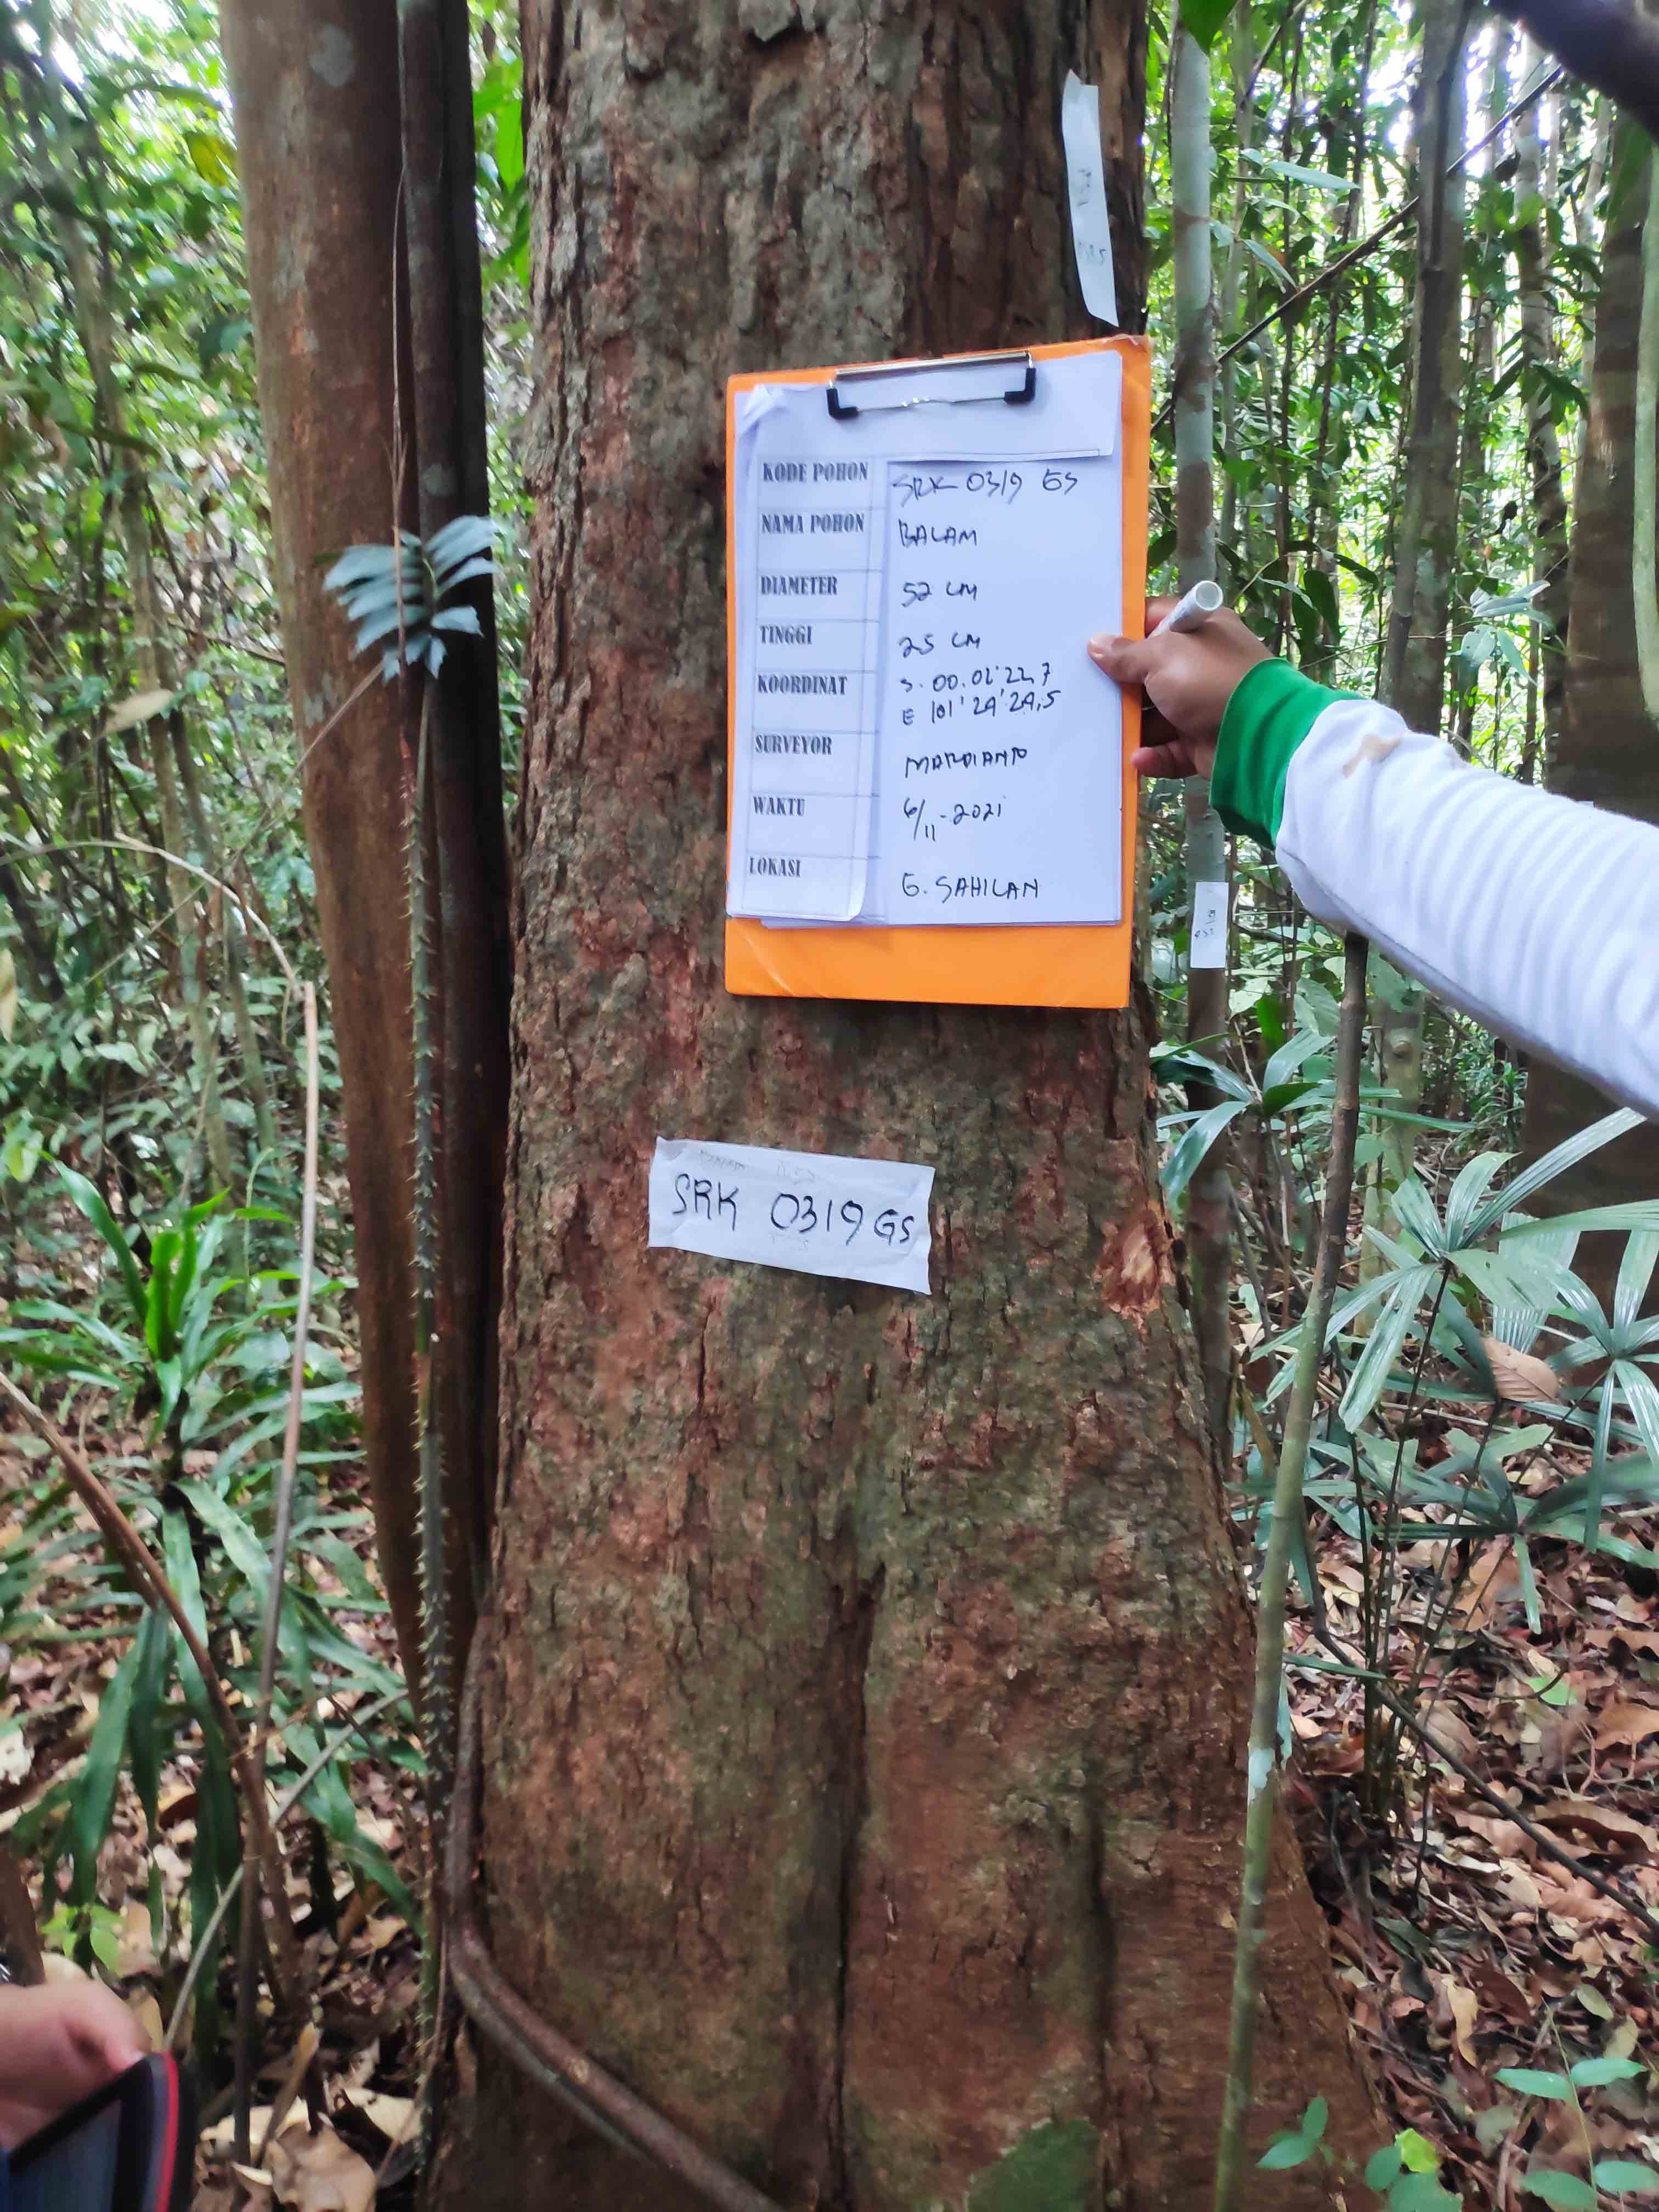 KODE POHON SRK 0319 GS
NAMA POHON BALAM
DIAMETER 52 CM
TINGGI 25 CM
KOORDINAT S. 00.02'22,7
E 101'24'24,5
SURVEYOR MARDIANTO
WAKTU 6/11-2021
LOKASI G. SAHILAN
SRK 0319 GS